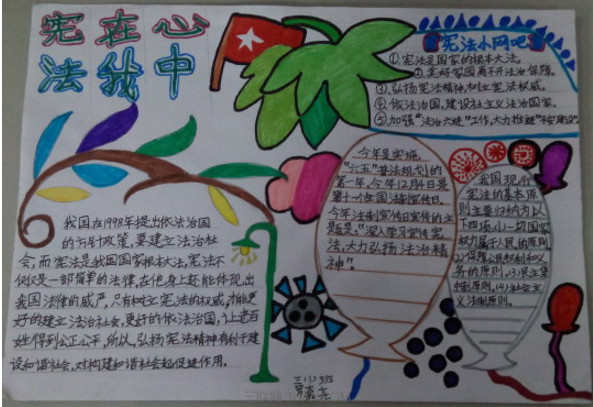 宪在心
法我中
宪法小网吧
①宪法是国家的根本大法。
②美好家园离不开法治保障。
③弘扬宪法精神,树立宪法权威。
④依法治国,建设社会主义法治国家。
⑤加强"法治六进"工作,大力推进
今年是实施
"六五"普法规划的
第一年,今年12月4日是
第十一个全国法制宣传日。
今年法制宣传日宣传的主
题是:"深入学习宣传宪
法,大力弘扬法治精
神"。
我国现行
宪法的基本原
则主要归纳为以
下四项,(1)一切国家
权力属于人民的原则,
(2)保障公民权利和义
务的原则,(3)民主集
中制原则,(4)社会主
义法制原则。
我国在1998年提出依法治国
的方针政策,要建立法治社
会,而宪法是我国国家根本大法,宪法不
仅仅是一部简单的法律,在他身上还能体现出
我国法律的威严,只有树立宪法的权威,才能更
好的建立法治社会,更好的依法治国,让老百
姓得到公正公平,所以,弘扬宪法精神有利于建
设和谐社会,对构建和谐社会起促进作用。
三(3)班